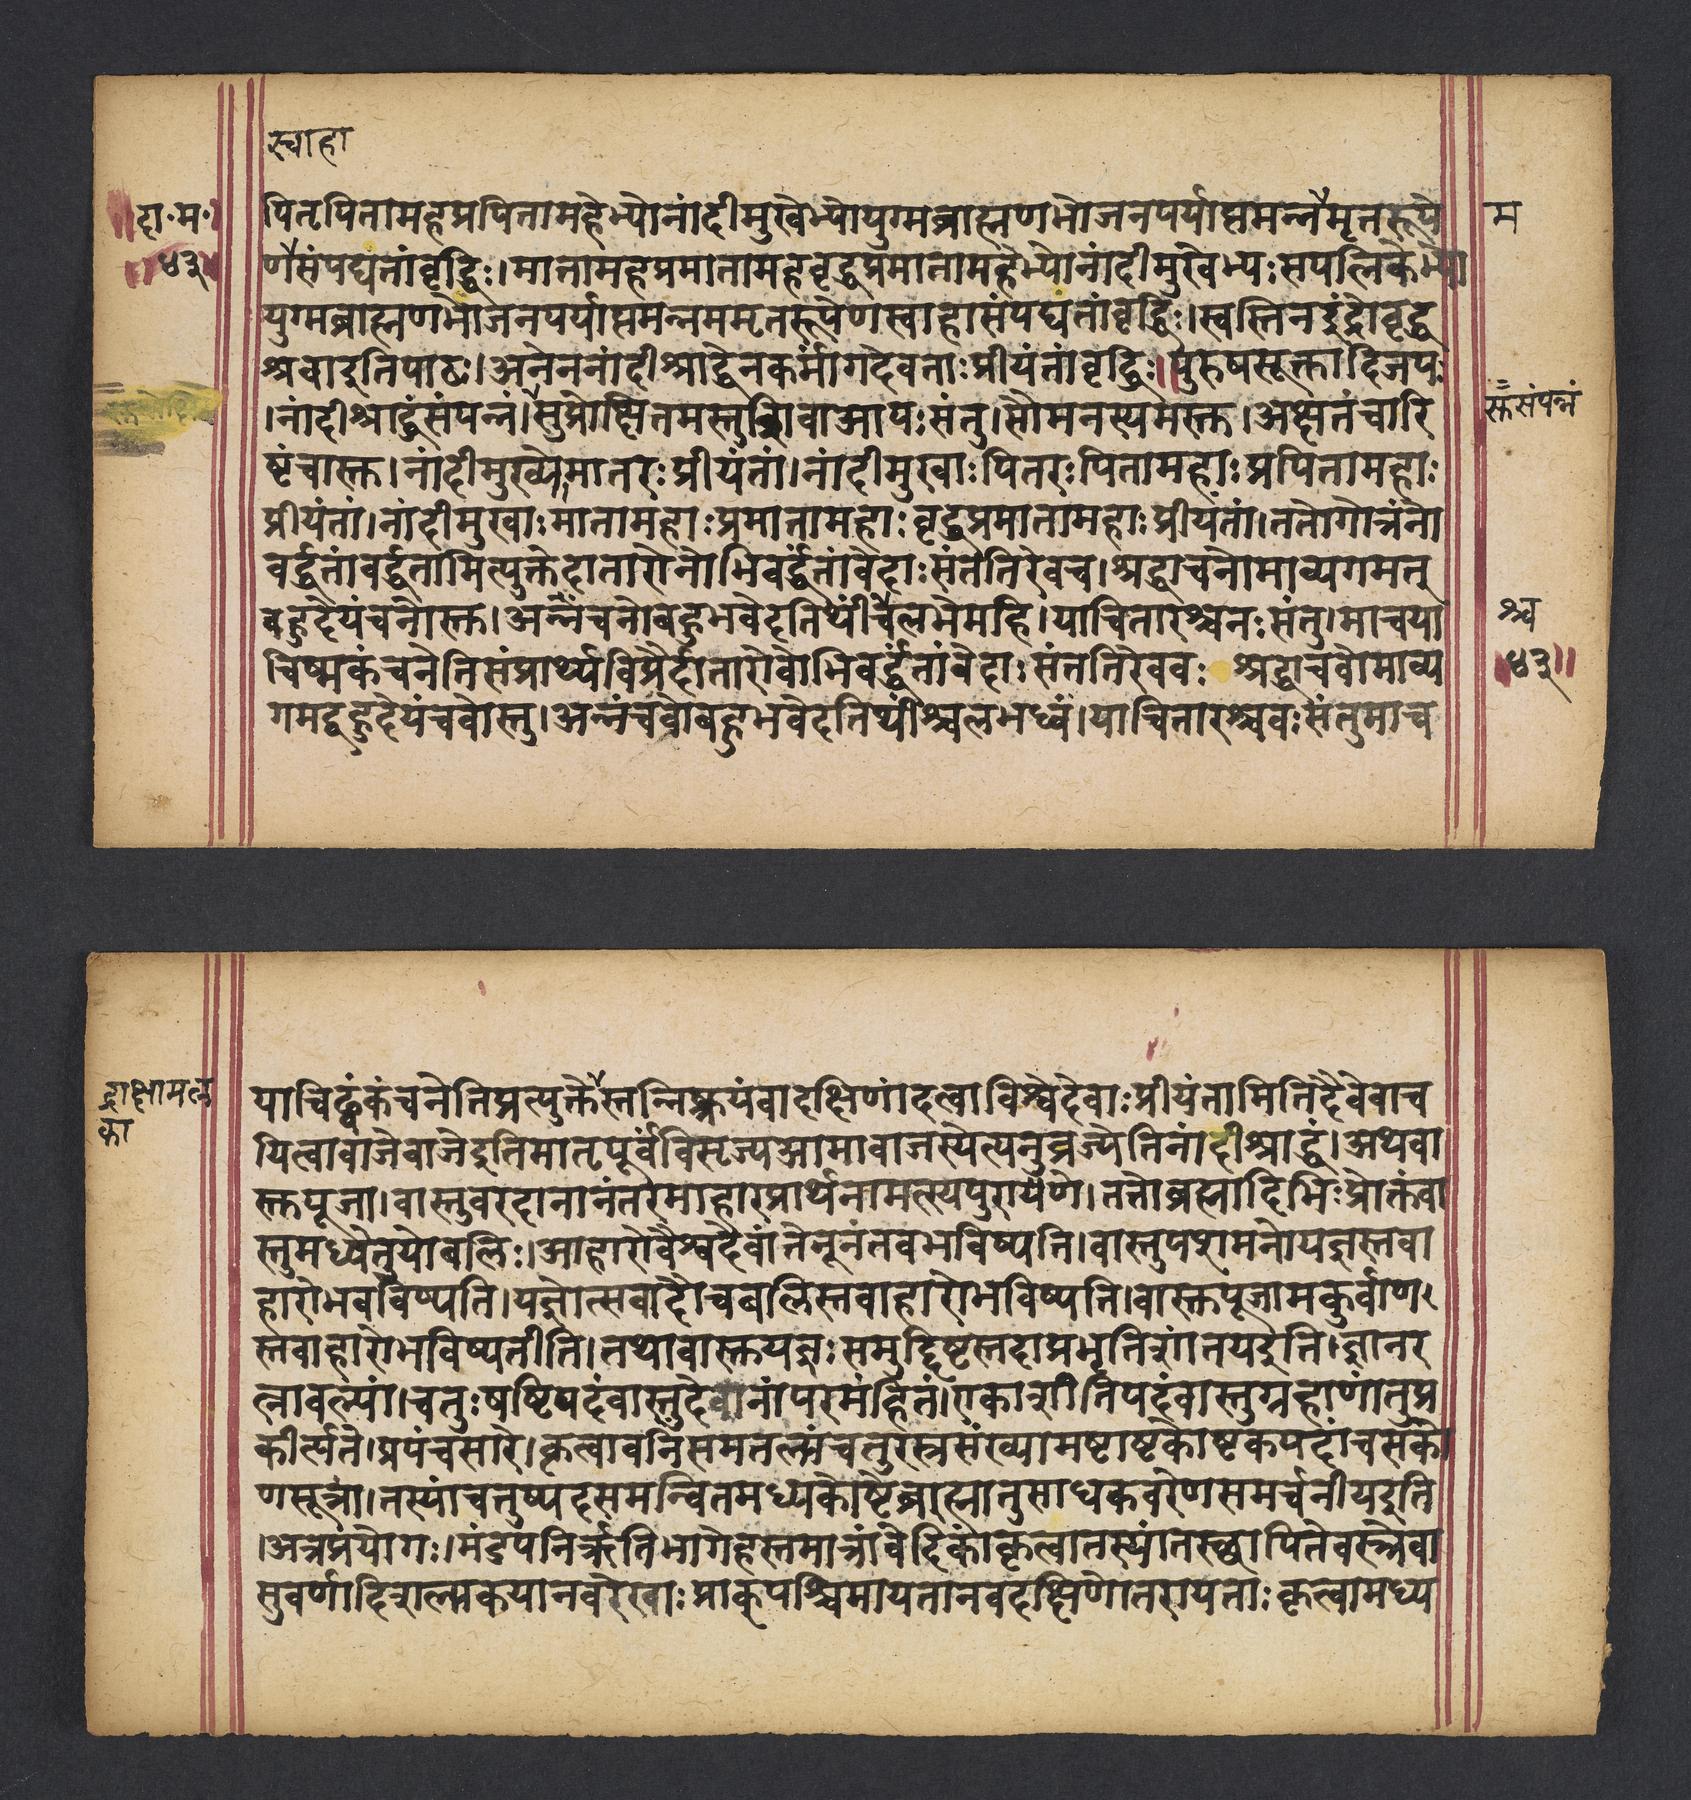 स्वाहा
दा॰म॰
पितृपितामहप्रपितामहेभ्योनांदीमुखेभ्योयुग्मब्राह्मणभोजनपर्याप्तमन्नमृतरूपे
म
४३
णसंपद्यंतांवृद्धिः।मातामहप्रमातामहवृद्धप्रमातामहेभ्योनांदीमुखेभ्यःसपत्निकेभ्यो
युग्मब्राह्मणभोजनपर्याप्तमन्नममृतरूपेणस्वाहासंपद्यंतांवृद्धिः।स्वस्तिनइंद्रोवृद्ध
श्रवाइतिपाठः।अनेननांदीश्राद्धेनकर्मांगदेवताःप्रीयंतांवृद्धिः॥पुरुषसूक्तादिजपः
।नांदीश्राद्धंसंपन्नं।सुप्रोक्षितमस्तुशिवाआपःसंतु।सौमनस्यमस्तु।अक्षतंचारि
संपन्नं
ष्टंचास्तु।नांदीमुख्योमातरःप्रीयंतां।नांदीमुखाःपितरःपितामहाःप्रपितामहाः
प्रीयंतां।नांदीमुखाःमातामहाःप्रमातामहाःवृद्धप्रमातामहाःप्रीयंतां।ततोगोत्रंनो
वर्द्धतांवर्द्धतामित्युक्तेदातारोनोभिवर्द्धंतांवेदाःसंततिरेवच।श्रद्धाचनोमाव्यगमत्
बहुदेयंचनोस्तु।अन्नंचनोबहुभवेदतिथींचलभेमहि।याचितारश्चनःसंतु।माचया
श्च
चिष्मकंचनेतिसंप्रार्थ्यविप्रैर्दातारोवोभिवर्द्धंतांवेदाःसंततिरेववः श्रद्धाचवोमाव्य
४३॥
गमद्बहुदेयंचवोस्तु।अन्नंचवोबहुभवेदतिथींश्चलभध्वं।याचितारश्चवःसंतुमाच
द्राक्षामल
का
याचिढ्वंकंचनेतिप्रत्युक्तैस्तन्निष्क्रयंवादक्षिणांदत्वाविश्वेदेवाःप्रीयंतामितिदैवेवाच
यित्वावाजेवाजेइतिमातृपूर्वंविसृज्यआमावाजस्येत्यनुव्रज्येतिनांदीश्राद्धं।अथवा
स्तुपूजा।वास्तुवरदानानंतरमाहारप्रार्थनामत्स्यपुराणे।ततोब्रह्मादिभिःप्रोक्तंवा
स्तुमध्येतुयोबलिः।आहारोवैश्वदेवांतेनूनंतवभविष्यति।वास्तुपशमनोयज्ञस्तवा
हारोभवविष्यति।यज्ञोत्सवादौचबलिस्तवाहारोभविष्यति।वास्तुपूजामकुर्वाण
स्तवाहारोभविष्यतीति।तथावास्तुयज्ञःसमुद्दिष्टस्तदाप्रभृतिशांतयइति।ज्ञानर
त्नावल्यां।चतुःषष्टिपदंवास्तुदेवानांपरमंहितं।एकाशीतिपदंवास्तुग्रहाणांतुप्र
कीर्त्यते।प्रपंचसारे।कृत्वावनिंसमतलांचतुरस्रसंख्यामष्टाष्टकोष्टकपदांचसको
णसूत्रां।तस्यांचतुष्पदसमन्वितमध्यकोष्टेब्राह्मातुसाधकवरेणसमर्चनीयइति
।अत्रप्रयोगः।मंडपनिर्ऋतिभागेहस्तमात्रांवेदिकांकृत्वातस्यांतस्थापितेवस्त्रेवा
सुवर्णादिशलाकयानवरेखाःप्राक्पश्चिमायतानवदक्षिणोत्तरायताःकृत्वामध्य